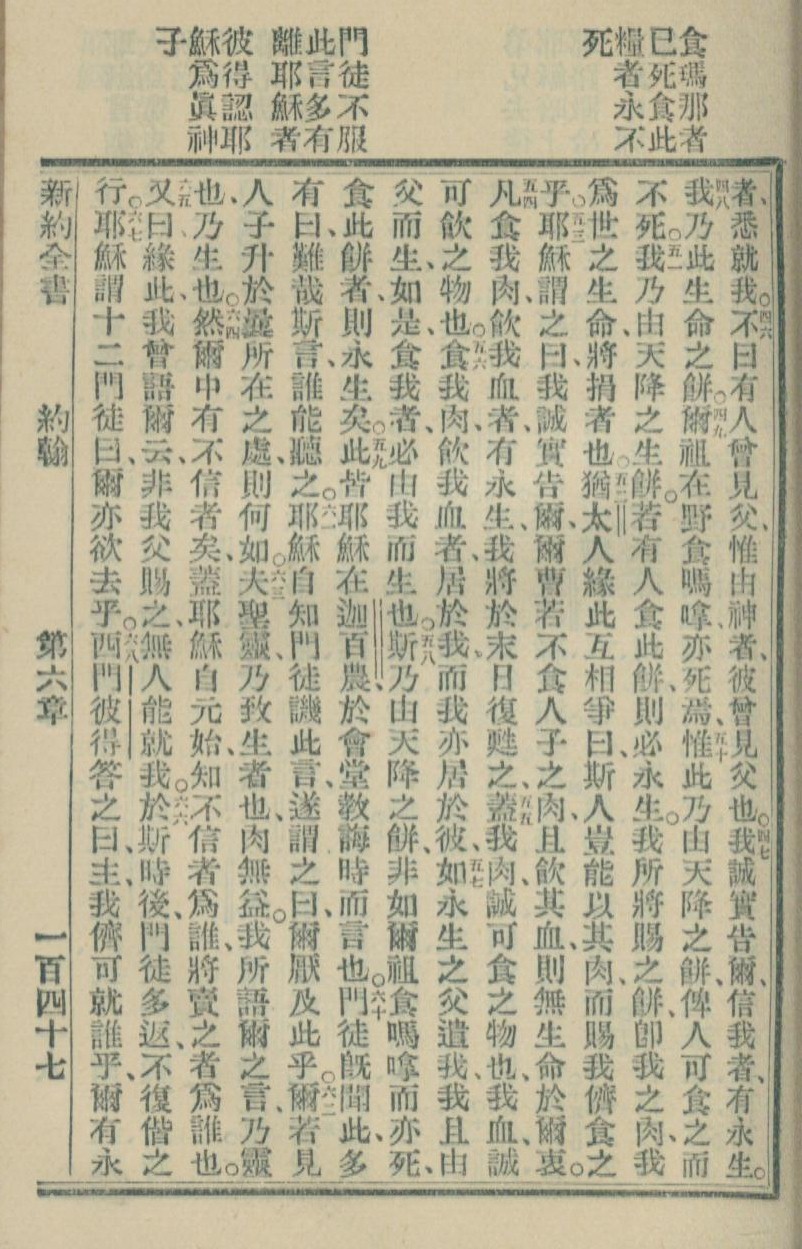 食瑪那者
已死食此
糧者永不
死
門徒不服
此言多有
離耶穌者
彼得認耶
穌爲眞神
子
者、悉就我。○四六不曰有人曾見父、惟由神者、彼曾見父也。○四七我誠實告爾、信我者、有永生。
四八我乃此生命之餅。○四九爾祖在野食嗎嗱、亦死焉、五十惟此乃由天降之餅、俾人可食之而
不死。○五一我乃由天降之生餅。若有人食此餅、則必永生。我所將賜之餅、卽我之肉、我
爲世之生命、將捐者也。○五二猶太人緣此互相爭曰、斯人豈能以其肉、而賜我儕食之
乎。○五三耶穌謂之曰、我誠實告爾、爾曹若不食人子之肉、且飲其血、則無生命於爾衷。
五四凡食我肉、飲我血者、有永生、我將於末日復甦之、五五蓋我肉、誠可食之物也、我血、誠
可飲之物也。○五六食我肉、飲我血者、居於我、而我亦居於彼、五七如永生之父遣我、我且由
父而生、如是、食我者、必由我而生也。○五八斯乃由天降之餅、非如爾祖食嗎嗱而亦死、
食此餅者、則永生矣。○五九此皆耶穌在迦百農、於會堂教誨時而言也。○六十門徒旣聞此、多
有曰、難哉斯言、誰能聽之。○六一耶穌自知門徒譏此言、遂謂之曰、爾厭及此乎。○六二爾若見
人子升於曩所在之處、則何如。○六三夫聖靈、乃致生者也、肉無益。我所語爾之言、乃靈
也、乃生也。○六四然爾中有不信者矣、蓋耶穌自元始、知不信者爲誰、將賣之者爲誰也。
六五又曰、緣此、我曾語爾云、非我父賜之、無人能就我。○六六於斯時後、門徒多返、不復偕之
行。○六七耶穌謂十二門徒曰、爾亦欲去乎。○六八西門彼得答之曰、主、我儕可就誰乎、爾有永
新約全書　約翰　第六章　一百四十七